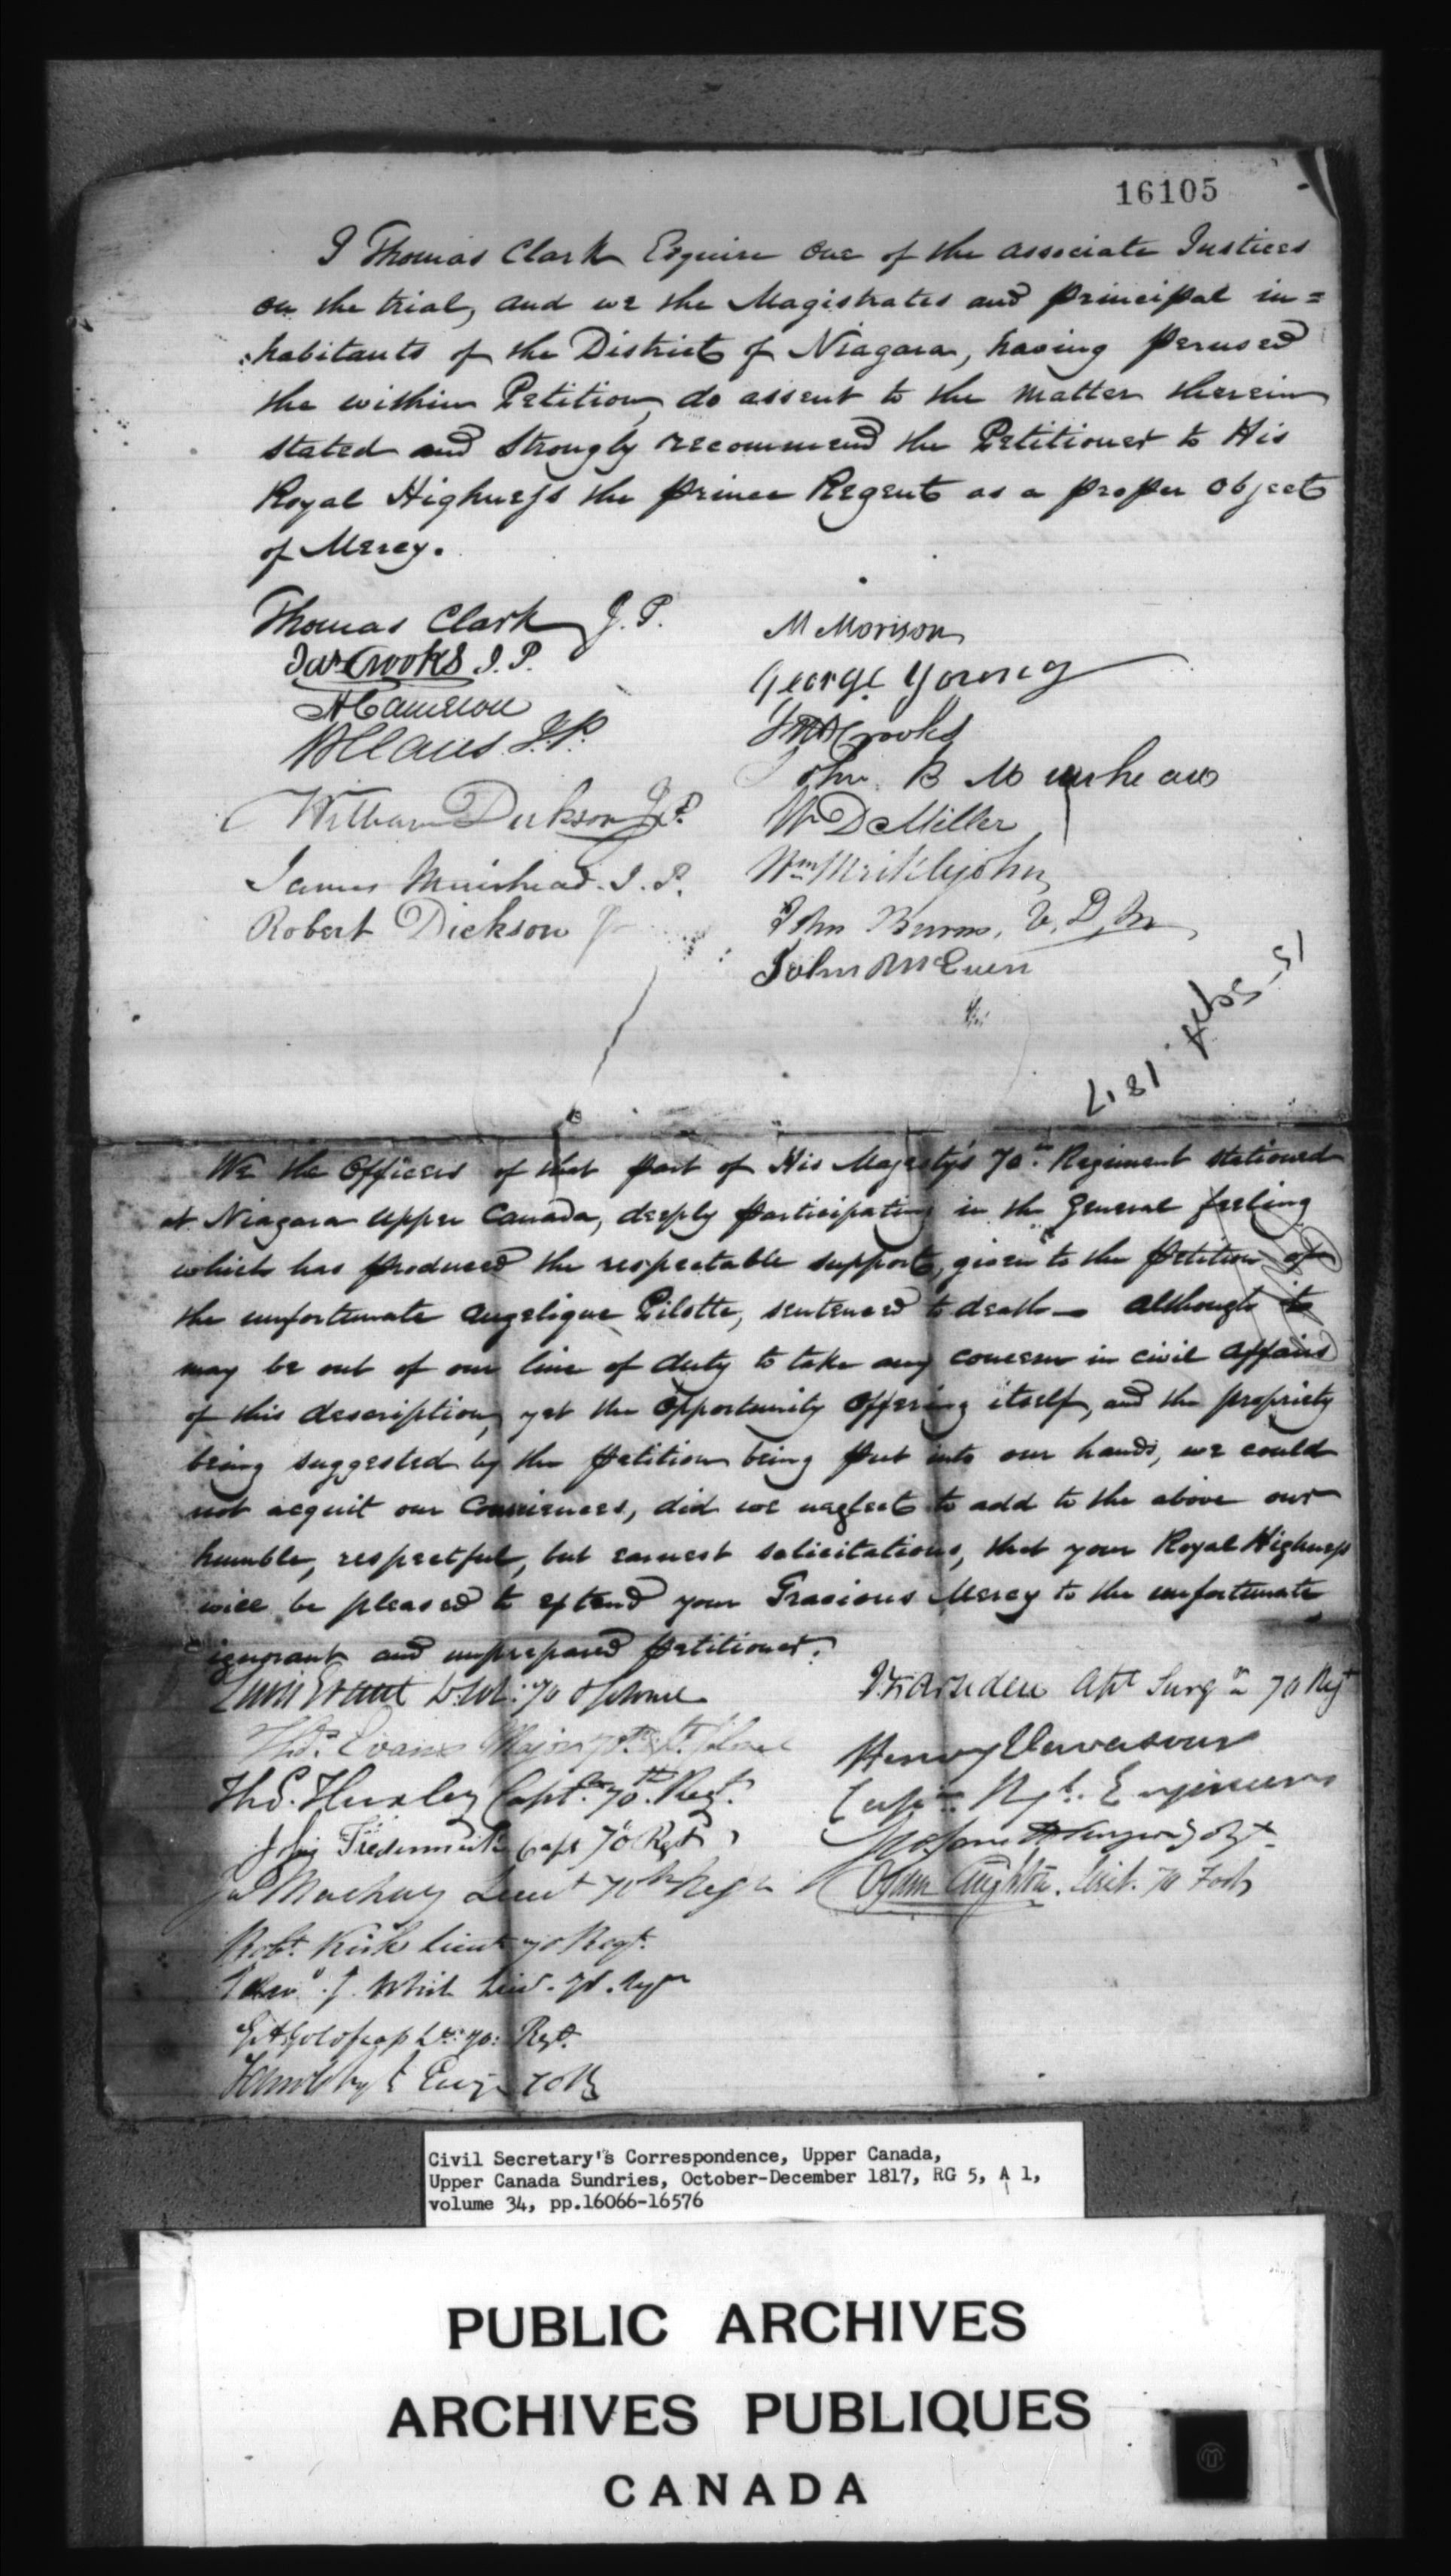 16105
I Thomas Clark Esquire one of the associate Justices
on the trial, and we the Magistrates and principal in=
:habitants of the District of Niagara, having perused
the within Petition, do assent to the matter therein
stated and strongly recommend the Petitioner to His
Royal Highness the Prince Regent as a proper object
of Mercy.
Thomas Clark J.P.
Jas Crooks J.P.
A Cameron
W Claus J.P.
William Dickson J.P.
James Muirhead. J.P.
Robert Dickson
M Morison
George Young
Crooks
John B Muirhead
W D Miller
Wm Miklejohn
John Burns, V.D.M
John McEwen
15 Sept. 1817
We the Officers of that part of His Majesty's 70th Regiment stationed
at Niagara Upper Canada, deeply participating in the general feeling
which has produced the respectable support, given to the petition of
the unfortunate Angelique Pilotte, sentenced to death — although it
may be out of our line of duty to take any concern in civil affairs
of this description, yet the opportunity offering itself, and the propriety
being suggested by the petition being put into our hands, we could
not acquit our Consciences, did we neglect to add to the above our
humble, respectful, but earnest solicitations, that your Royal Highness
will be pleased to extend your Gracious Mercy to the unfortunate
ignorant and unprepared petitioner.
Lewis Grant 70
Thos. Evans Major 70th
Thos. Huxley Capt. 70th Regt.
Capt 70 Regt
Lieut 70th Regt
Robt. Kirk Lieut 70 Regt.
White Lieut. 70. Regt
70: Regt.
70
Asst Surgn 70 Regt
Henry Vavasour
Captn. Rl. Engineers
Lieut. 70 Foot
Civil Secretary's Correspondence, Upper Canada,
Upper Canada Sundries, October-December 1817, RG 5, A 1,
volume 34, pp.16066-16576
PUBLIC ARCHIVES
ARCHIVES PUBLIQUES
CANADA